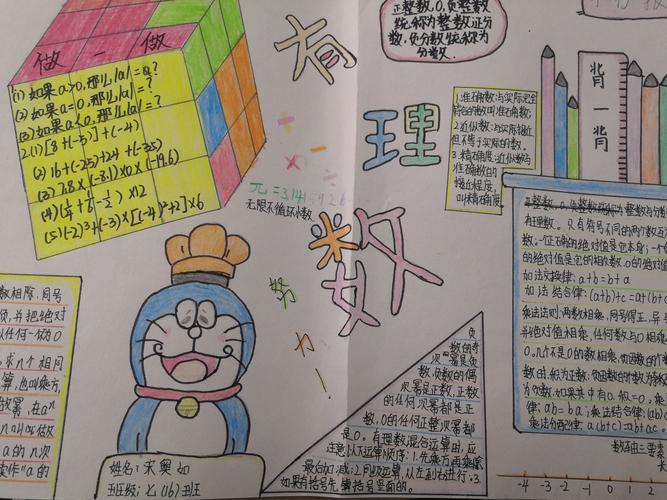 正整数,0,负整数
统称为整数,正分
数,负分数统称为
分数.
做一做
(1) 如果a>0,那么|a|=a?
(2) 如果a=0,那么|a|=?
(3) 如果a<0,那么|a|=?
2.(1) [8+(-5)]+(-4)
(2) 16+(-25)+24+(-35)
(3) 7.8×(-3.1)×0×(-19.6)
×12
(5) (-2)³+(-3)×[(-4)²+2]×6
有
理
数
背一背
1.准确数:与实际完全
符合的数叫准确数
2.近似数:与实际接近
但不等于实际的数.
3.精确度:近似数与
准确数的
接近程度,
叫精确度.
π=3.1415926
无限不循环小数
努力!
有理数.只有符号不同的两个数互为
数.一个正确的绝对值是它本身;一个
的绝对值是它的相反数.0的绝对值
加法交换律:a+b=b+a
加法结合律:(a+b)+c=a+(b+
乘法法则:两数相乘,同号得正,异号
并绝对值相乘,任何数与0相乘
0.几个不是0的数相乘,负因数的个
数时,积为正数;负因数的个数为奇数
为负数.如果其中有0,积=0.乘
律:ab=ba;乘法结合律:(ab)
乘法分配律:a(b+c)=ab+ac
数轴三要素
-4 -3 -2 -1 0 1 2
数相除,同号
负,并把绝对
以任何一切为0
求n个相同
算,也叫乘方,
做幂,在aⁿ
a的n次
读作"a的
姓名:宋奥如
班级:七(16)班
负
数的奇
次幂是负
数,负数的偶
次幂是正数,正数
的任何次幂都是正
数,0的任何正整次幂都
是0.有理数混合运算中,应
注意以下运算顺序:1.先乘方,再乘除
最后加减;2.同级运算,从左到右进行;3
如果有括号先算括号里面的.